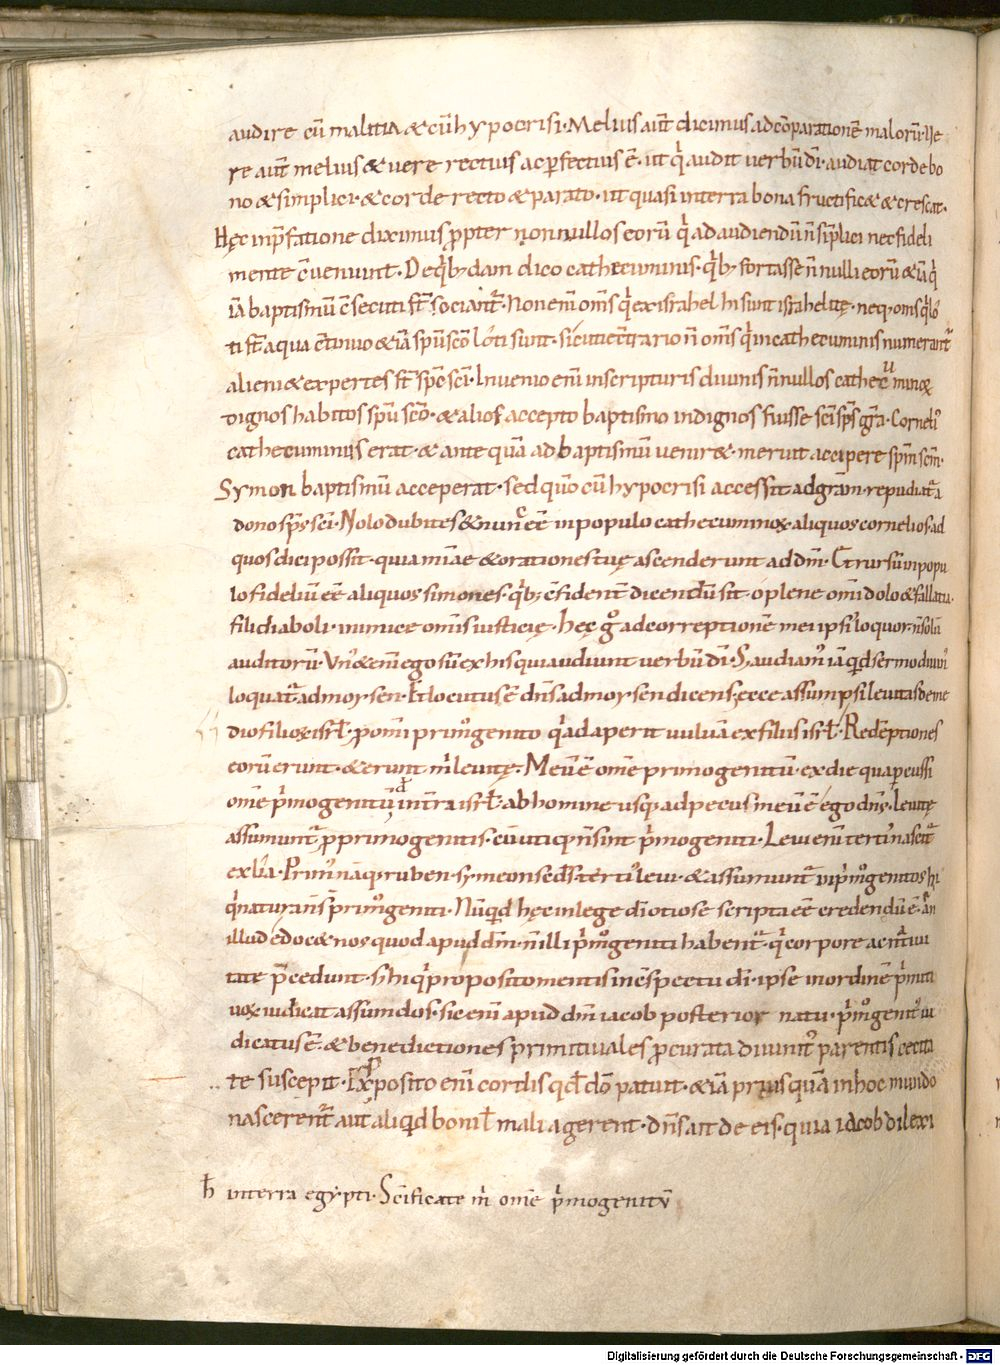 audire cū malitia & cū hypocrisi. Melius aūt dicimus ad cōparationē malorū. Ue
re aūt melius & vere rectius ac ꝑfectius ē. ut qͥ audit verbū dī. audiat corde bo
no & simplici. & corde recto & parato. ut quasi in terra bona fructific& & crescat.
Hęc in p̄fatione diximus ꝓpter nonnullos eorū qͥ ad audiendū n̄ simplici nec fideli
mente c̄veniunt. De qͥbꝫdam dico cathecuminis. qͥbꝫ fortasse n̄nulli eorū & iā qͥ
iā baptismū c̄secuti st̄ sociant̄. Non enī om̄s qͥ ex israhel hi sunt israhelitę. neqꝫ om̄s qͥ lo
ti st̄ aqua c̄tinuo & iā spū sc̄o loti sunt. sicuti e c̄trario n̄ om̄s qͥ in cathecuminis numerant̄
alieni & expertes st̄ spc̄ sc̄i. Invenio enī in scripturis divinis n̄nullos cathecuminoꝝ
dignos habitos spū sc̄o. & alios accepto baptismo indignos fuisse sc̄i sps̄ gr̄a. Corneliꝰ
cathecuminus erat. & ante quā ad baptismū venir&. meruit accipere spm̄ sc̄m.
Symon baptismū acceperat. sed qm̄o cū hypocrisi accessit ad gr̄am. repudiat̄ a
dono sps̄ sc̄i. Nolo dubites & nunc ēē in populo cathecuminoꝝ aliquos cornelios. ad
quos dici possit. quia m̄iae & orationes tuę ascenderunt ad dm̄. Et rursū in popu
lo fideliū ēē aliquos simones. qͥbꝫ c̄fident̄ dicendū sit. o plene om̄i dolo & fallatia.
fili diaboli. inimice om̄is iusticię. Hęc gͦ ad correptionē mei ipsiꝰ loquor. n̄ solū
auditorū. Unꝰ & enī ego sū ex his qui audiunt verbū dī. S; audiamꝰ iā qͥd sermo divinꝰ
loquat̄ ad moysen. Et locutus ē dn̄s ad moysen dicens. ecce assumpsi levitas de me
dio filioꝝ isrł. ꝓ om̄i primogenito qͥ adaperit vulvā ex filiis isrł. Redēptiones
eorū erunt. & erunt m̄ levitę. Meū ē om̄e primogenitū. ex die qua ꝑcussi
om̄e pͥmogenitū đ in t̄ra isrł. ab homine usqꝫ ad pecus meū ē ego dn̄s. Levitę
assumunt̄ ꝓ primogenitis. cū utiqꝫ n̄ sint pͥmogeniti. Levi enī tertiꝰ nascit̄
ex lia. Primꝰ nāqꝫ ruben. symeon sed̄s. tertiꝰ levi. & assumunt̄ in pͥmogenitos hi
qͥ natura n̄ s̄ primogeniti. Nūqͥd hęc in lege dī otiose scripta ēē credendū ē. an
illud edoc& nos quod apud dm̄. n̄ illi pͥmogeniti habent̄. qͥ corpore ac nativi
tate p̄cedunt. s; hi qͥ proposito mentis in c̄spectu dī. ipse in ordinē pͥmiti
voꝝ iudicat assumdos. sic enī apud dm̄ iacob posterior natu. pͥmogenitꝰ iu
dicatus ē. & benedictiones primitivales ꝓcurata divinitꝰ parentis cecita
te suscepit. Ex proposito enī cordis qđ dō patuit. & iā prius quā in hoc mundo
nascerent̄ aut aliqͥd boni ł mali agerent. dn̄s ait de eis. quia iacob dilexi
ħ in terra egypti. Sc̄ificate m̄ om̄e pͥmogenitū
Digitalisierung gefördert durch die Deutsche Forschungsgemeinschaft - DFG